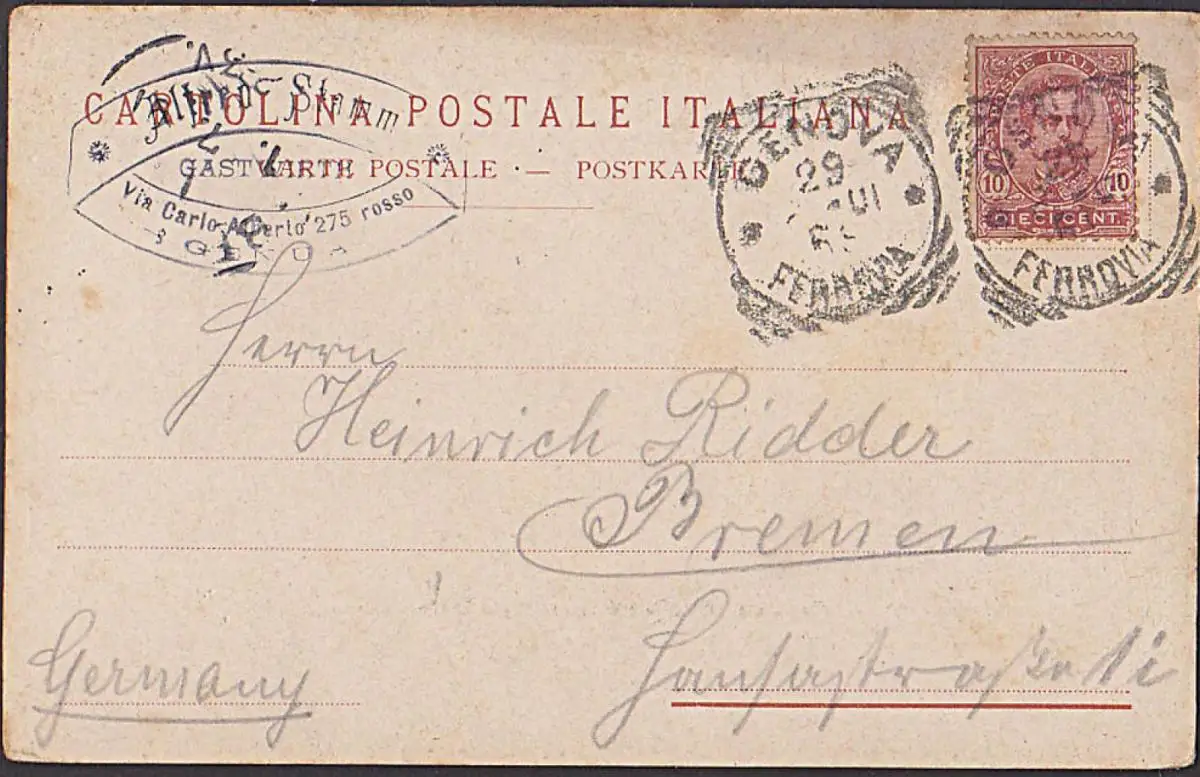 CARTOLINA POSTALE ITALIANA
CARTE POSTALE — POSTKARTE
Alfredo Stamm
GASTWIRTH
Via Carlo Alberto 275 rosso
GENUA
GENOVA
29
FERROVIA
POSTE ITALIANE
10 10
DIECI CENT.
FERROVIA
Herrn
Heinrich Ridder
Bremen
Hansastraße
Germany